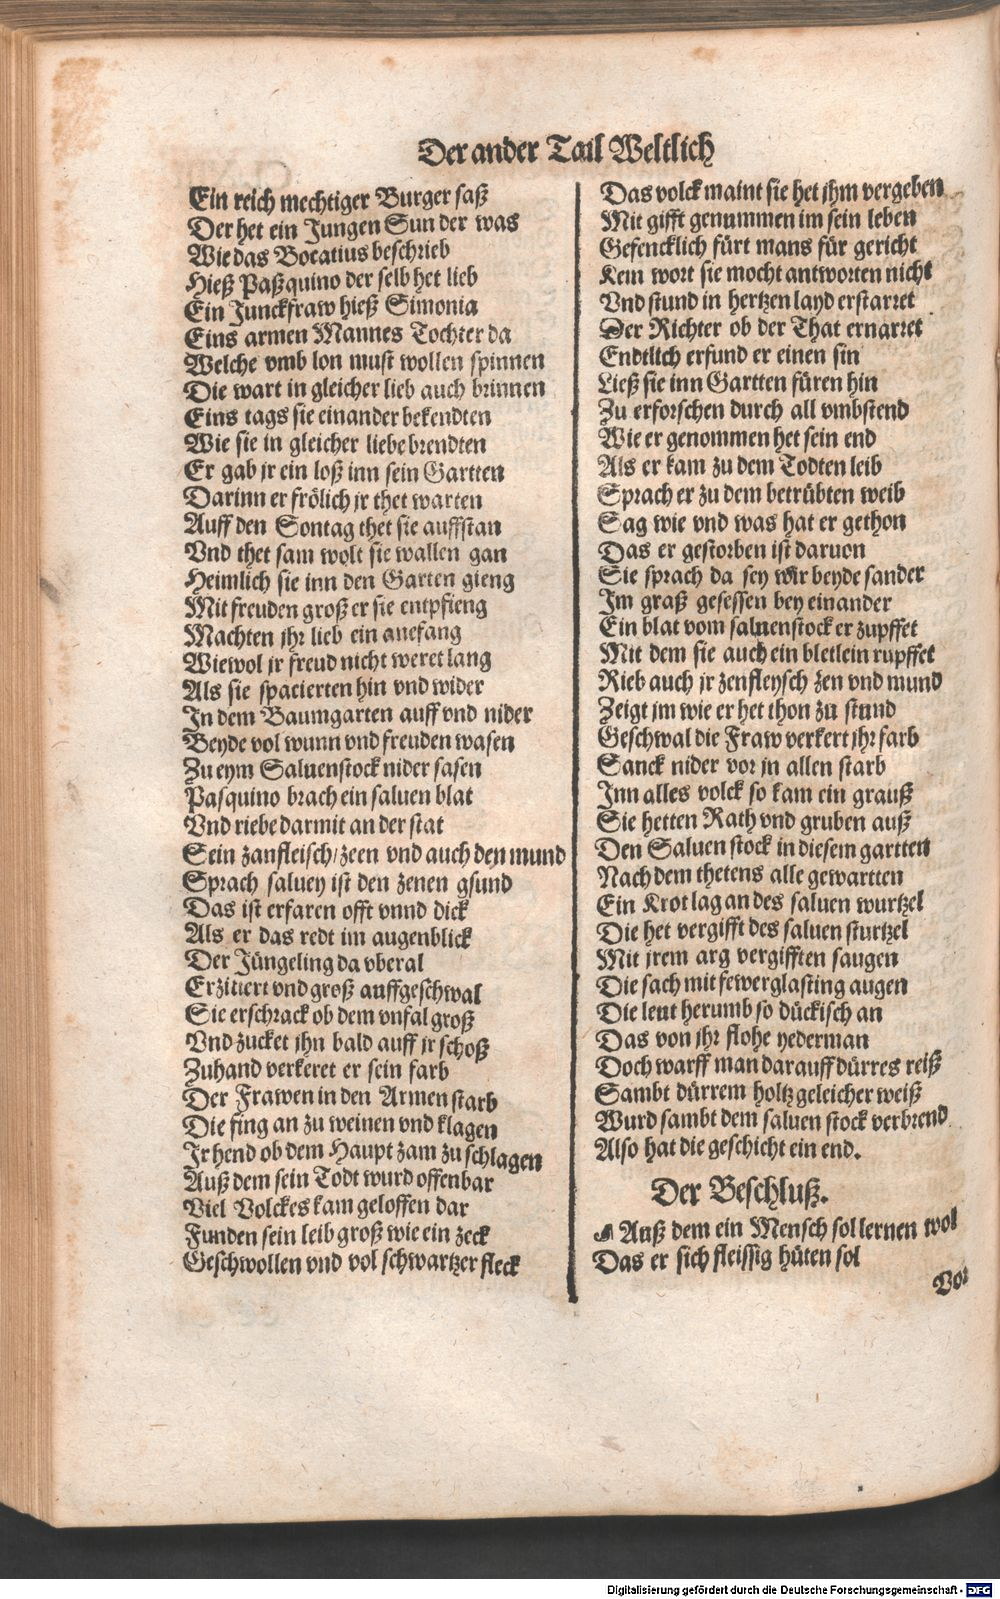 Der ander Tail Weltlich
Ein reich mechtiger Burger saß
Der het ein Jungen Sun der was
Wie das Bocatius beschrieb
Hieß Paßquino der selb het lieb
Ein Junckfraw hieß Simonia
Eins armen Mannes Tochter da
Welche vmb lon must wollen spinnen
Die wart in gleicher lieb auch brinnen
Eins tags sie einander bekendten
Wie sie in gleicher liebe brendten
Er gab jr ein loß inn sein Gartten
Darinn er frölich jr thet warten
Auff den Sontag thet sie auffstan
Vnd thet sam wolt sie wallen gan
Heimlich sie inn den Garten gieng
Mit freuden groß er sie entpfieng
Machten jhr lieb ein anefang
Wiewol jr freud nicht weret lang
Als sie spacierten hin vnd wider
In dem Baumgarten auff vnd nider
Beyde vol wunn vnd freuden wasen
Zu eym Saluenstock nider sasen
Pasquino brach ein saluen blat
Vnd riebe darmit an der stat
Sein zanfleisch/zeen vnd auch den mund
Sprach saluey ist den zenen gsund
Das ist erfaren offt vnnd dick
Als er das redt im augenblick
Der Jüngeling da vberal
Erzittert vnd groß auffgeschwal
Sie erschrack ob dem vnfal groß
Vnd zucket jhn bald auff jr schoß
Zuhand verkeret er sein farb
Der Frawen in den Armen starb
Die fing an zu weinen vnd klagen
Ir hend ob dem Haupt zam zu schlagen
Auß dem sein Todt wurd offenbar
Viel Volckes kam geloffen dar
Funden sein leib groß wie ein zeck
Geschwollen vnd vol schwartzer fleck
Das volck maint sie het jhm vergeben
Mit gifft genummen im sein leben
Gefencklich fürt mans für gericht
Kein wort sie mocht antworten nicht
Vnd stund in hertzen layd erstarret
Der Richter ob der That ernarret
Endtlich erfund er einen sin
Ließ sie inn Gartten füren hin
Zu erforschen durch all vmbstend
Wie er genommen het sein end
Als er kam zu dem Todten leib
Sprach er zu dem betrübten weib
Sag wie vnd was hat er gethon
Das er gestorben ist daruon
Sie sprach da sey wir beyde sander
Im graß gesessen bey einander
Ein blat vom saluenstock er zupffet
Mit dem sie auch ein bletlein rupffet
Rieb auch jr zenfleysch zen vnd mund
Zeigt jm wie er het thon zu stund
Geschwal die Fraw verkert jhr farb
Sanck nider vor jn allen starb
Inn alles volck so kam ein grauß
Sie hetten Rath vnd gruben auß
Den Saluen stock in diesem gartten
Nach dem thetens alle gewartten
Ein Krot lag an des saluen wurtzel
Die het vergifft des saluen sturtzel
Mit jrem arg vergifften saugen
Die sach mit fewerglasting augen
Die leut herumb so dückisch an
Das von jhr flohe yederman
Doch warff man darauff dürres reiß
Sambt dürrem holtz geleicher weiß
Wurd sambt dem saluen stock verbrend
Also hat die geschicht ein end.
Der Beschluß.
☙ Auß dem ein Mensch sol lernen wol
Das er sich fleissig hüten sol
Vor
Digitalisierung gefördert durch die Deutsche Forschungsgemeinschaft - DFG